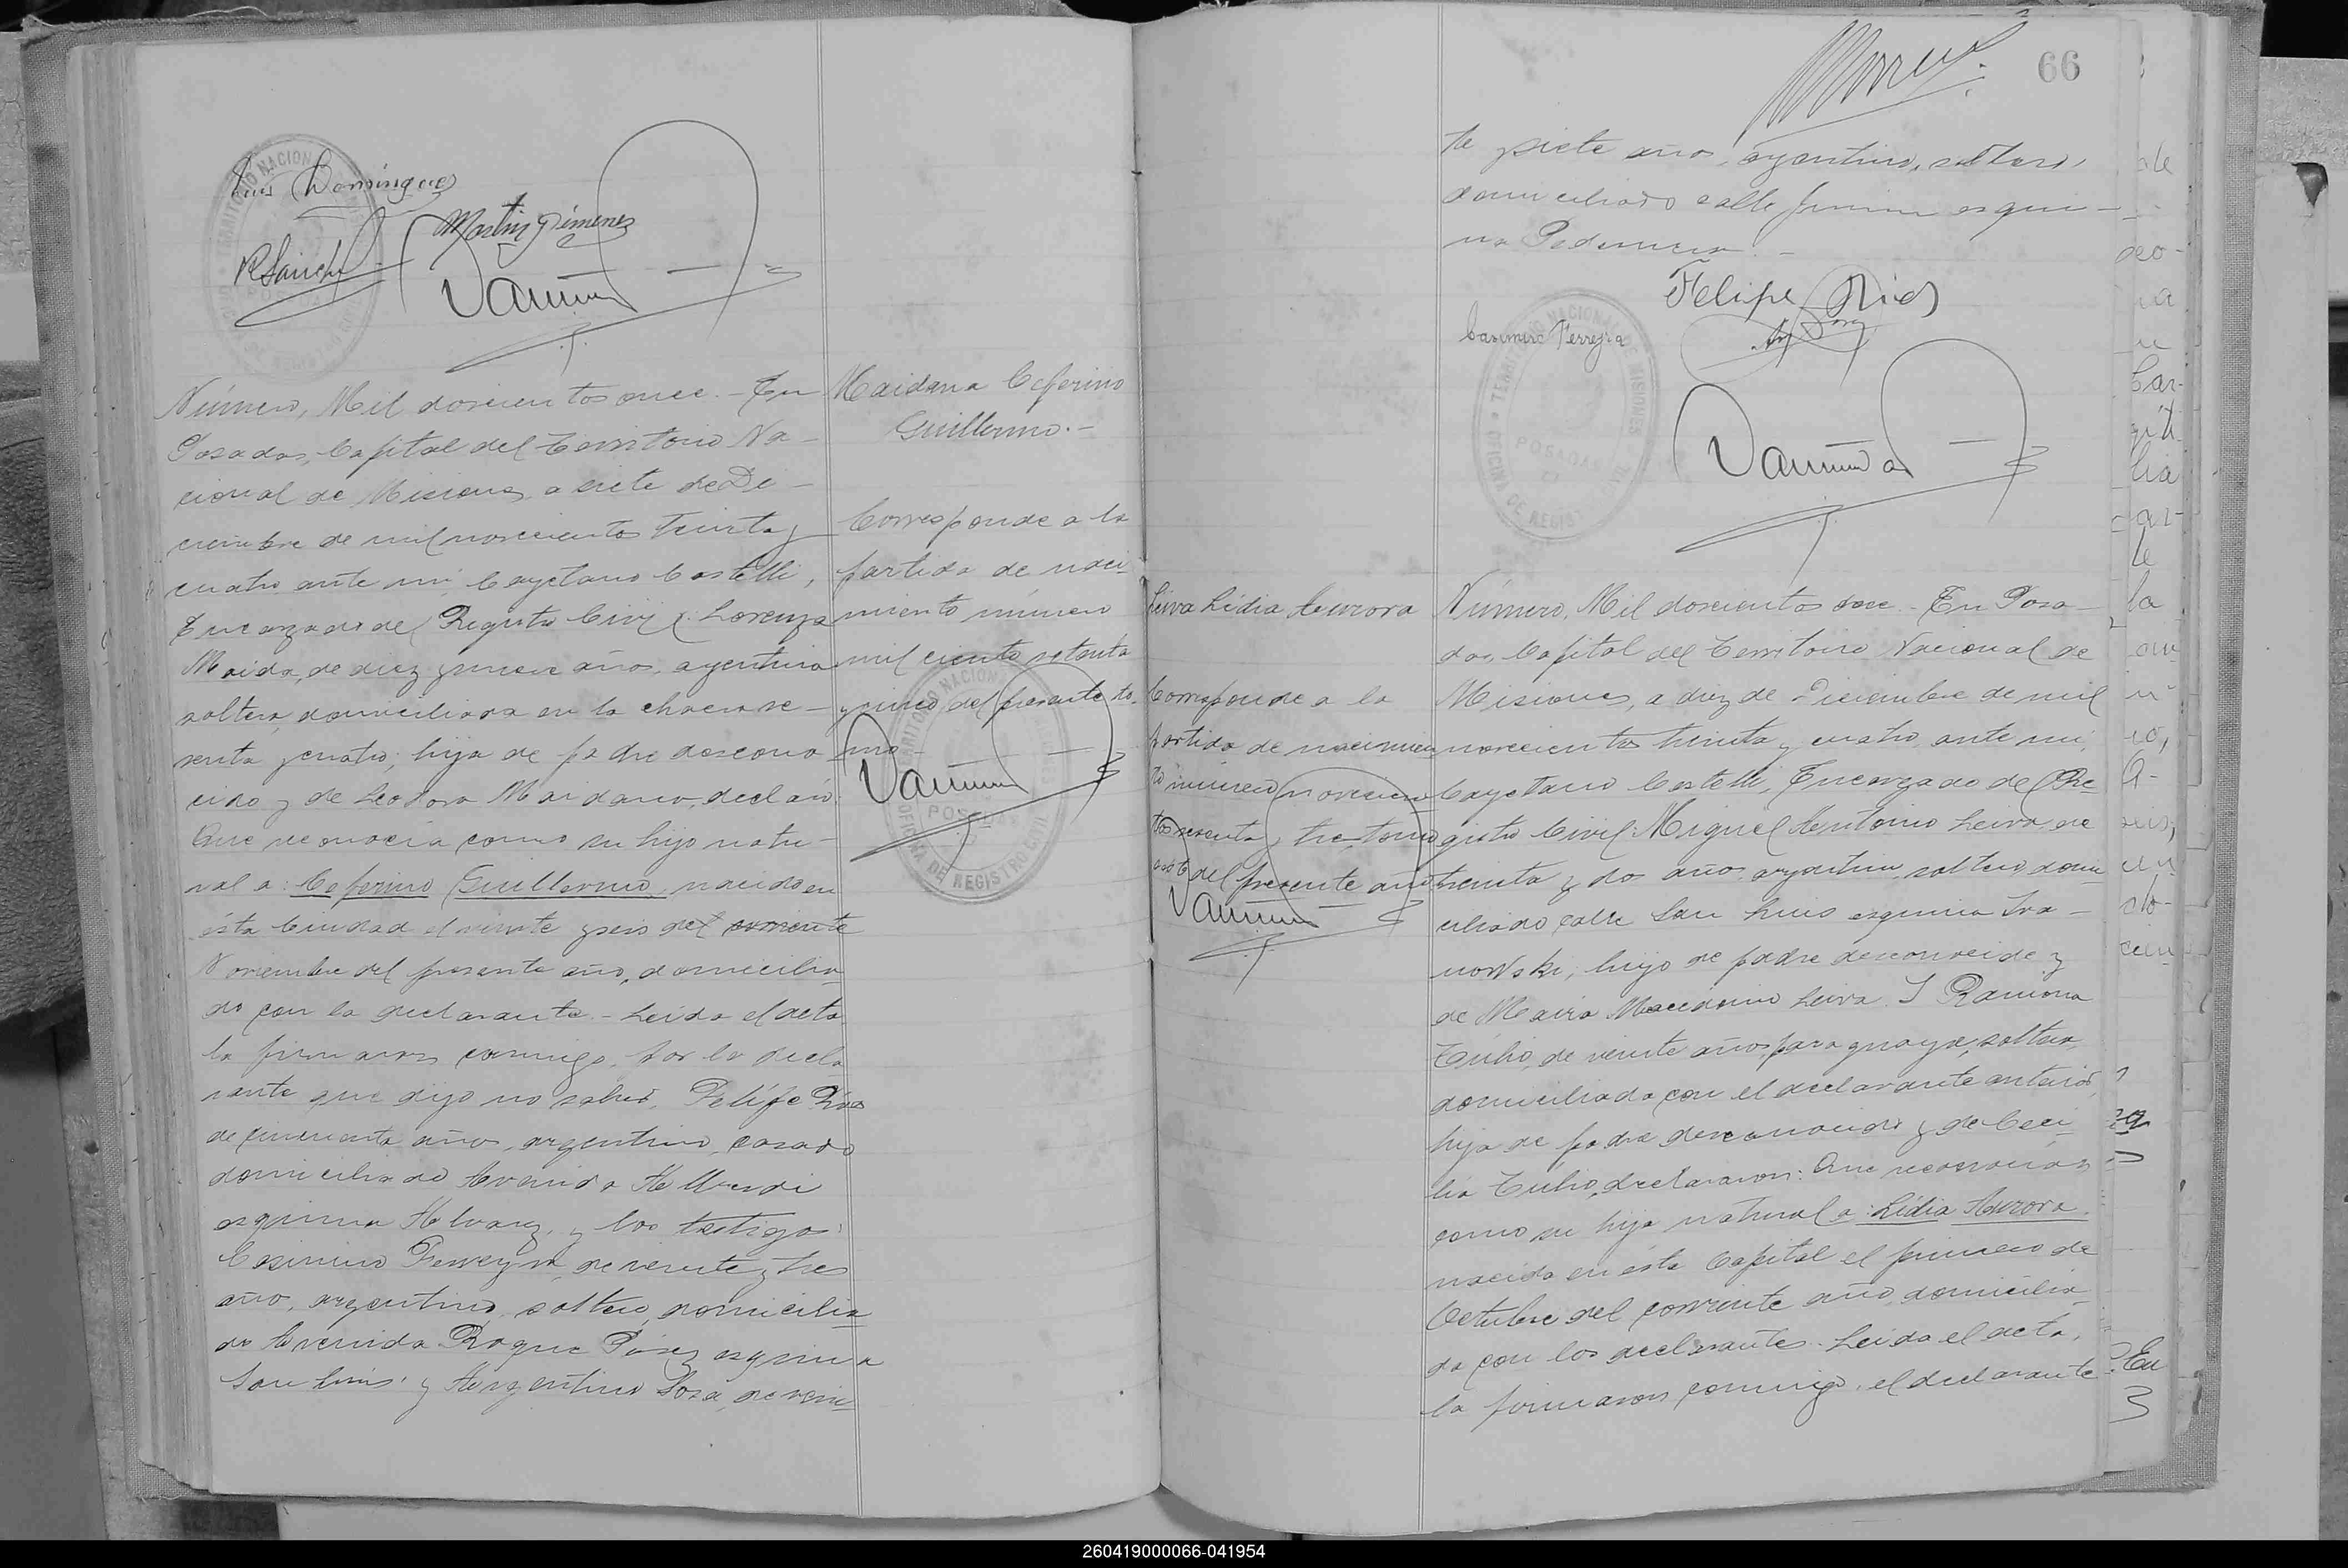 Luis Dominguez
Martin Gimenez
R Sanchez
Número, Mil doscientos once. - En
Posadas, Capital del Territorio Na-
cional de Misiones, a siete de Di-
ciembre de mil novecientos treinta y
cuatro, ante mi, Cayetano Castelli,
Encargado del Registro Civil: Lorenza
Maida, de diez y nueve años, argentina
soltera, domiciliada en la chacra se-
senta y cuatro; hija de padre descono-
cido y de Leodora Maidana, declaró:
Que reconocía como su hijo natu-
ral a: Ceferino Guillermo, nacido en
ésta Ciudad el veinte y seis del corriente
Noviembre del presente año, domicilia-
do con la declarante. - Leida el acta,
la firmaron conmigo, por la decla-
rante que dijo no saber, Felipe Rios
de cincuenta años, argentino, casado
domiciliado Avenida
esquina Alvarez, y los testigos:
Casimiro Ferreyra, de veinte y tres
años, argentino, soltero, domicilia-
do Avenida Roque Pérez esquina
San Luis; y Argentino Sosa, de vein-
Maidana Ceferino
Guillermo. -
Corresponde a la
partida de naci-
miento número
mil ciento setenta
y cinco del presente to-
mo -
66
te y siete años, argentino, soltero,
domiciliado calle Junin esqui-
na Pedernera. -
Felipe Rios
Casimiro Ferreyra
TERRITORIO NACIONAL DE MISIONES
POSADAS
OFICINA DE REGISTRO CIVIL
Leiva Lidia Aurora
Corresponde a la
partida de nacimien-
to número novecien-
tos sesenta y tres tomo
del presente año
Número, Mil doscientos doce. - En Posa-
das, Capital del Territorio Nacional de
Misiones, a diez de Diciembre de mil
novecientos treinta y cuatro, ante mi,
Cayetano Castelli, Encargado del Re-
gistro Civil: Miguel Antonio Leiva, de
treinta y dos años, argentino, soltero, domi-
ciliado calle San Luis esquina Iva-
nowski, hijo de padre desconocido y
de Maria Leiva. I Ramona
Tulio, de veinte años, paraguaya, soltera,
domiciliada con el declarante anterior,
hija de padre desconocido y de Ceci-
lia Tulio, declararon: Que reconocian
como su hija natural a: Lidia Aurora.
nacida en ésta Capital el primero de
Octubre del corriente año, domicilia-
da con los declarantes. Leida el acta,
la firmaron conmigo, el declarante
260419000066-041954